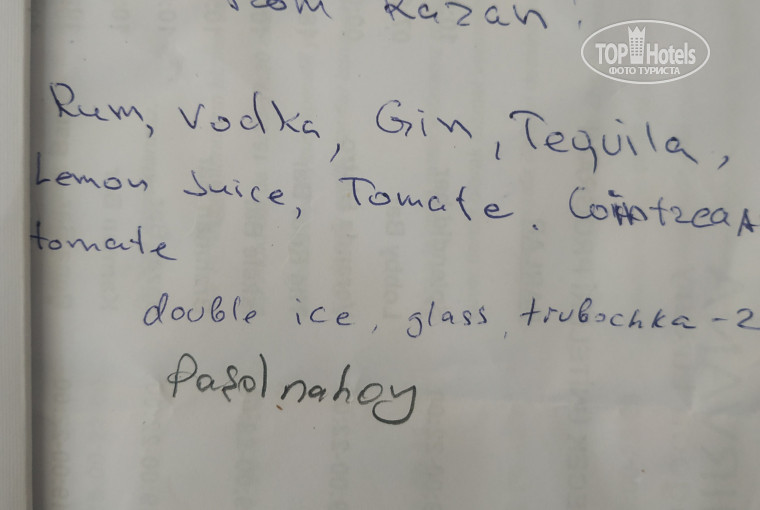 from Kazan!
TOP Hotels
ФОТО ТУРИСТА
Rum, Vodka, Gin, Tequila,
Lemon Juice, Tomate.
tomate
double ice, glass, trubochka - 2
Pasol nahoy